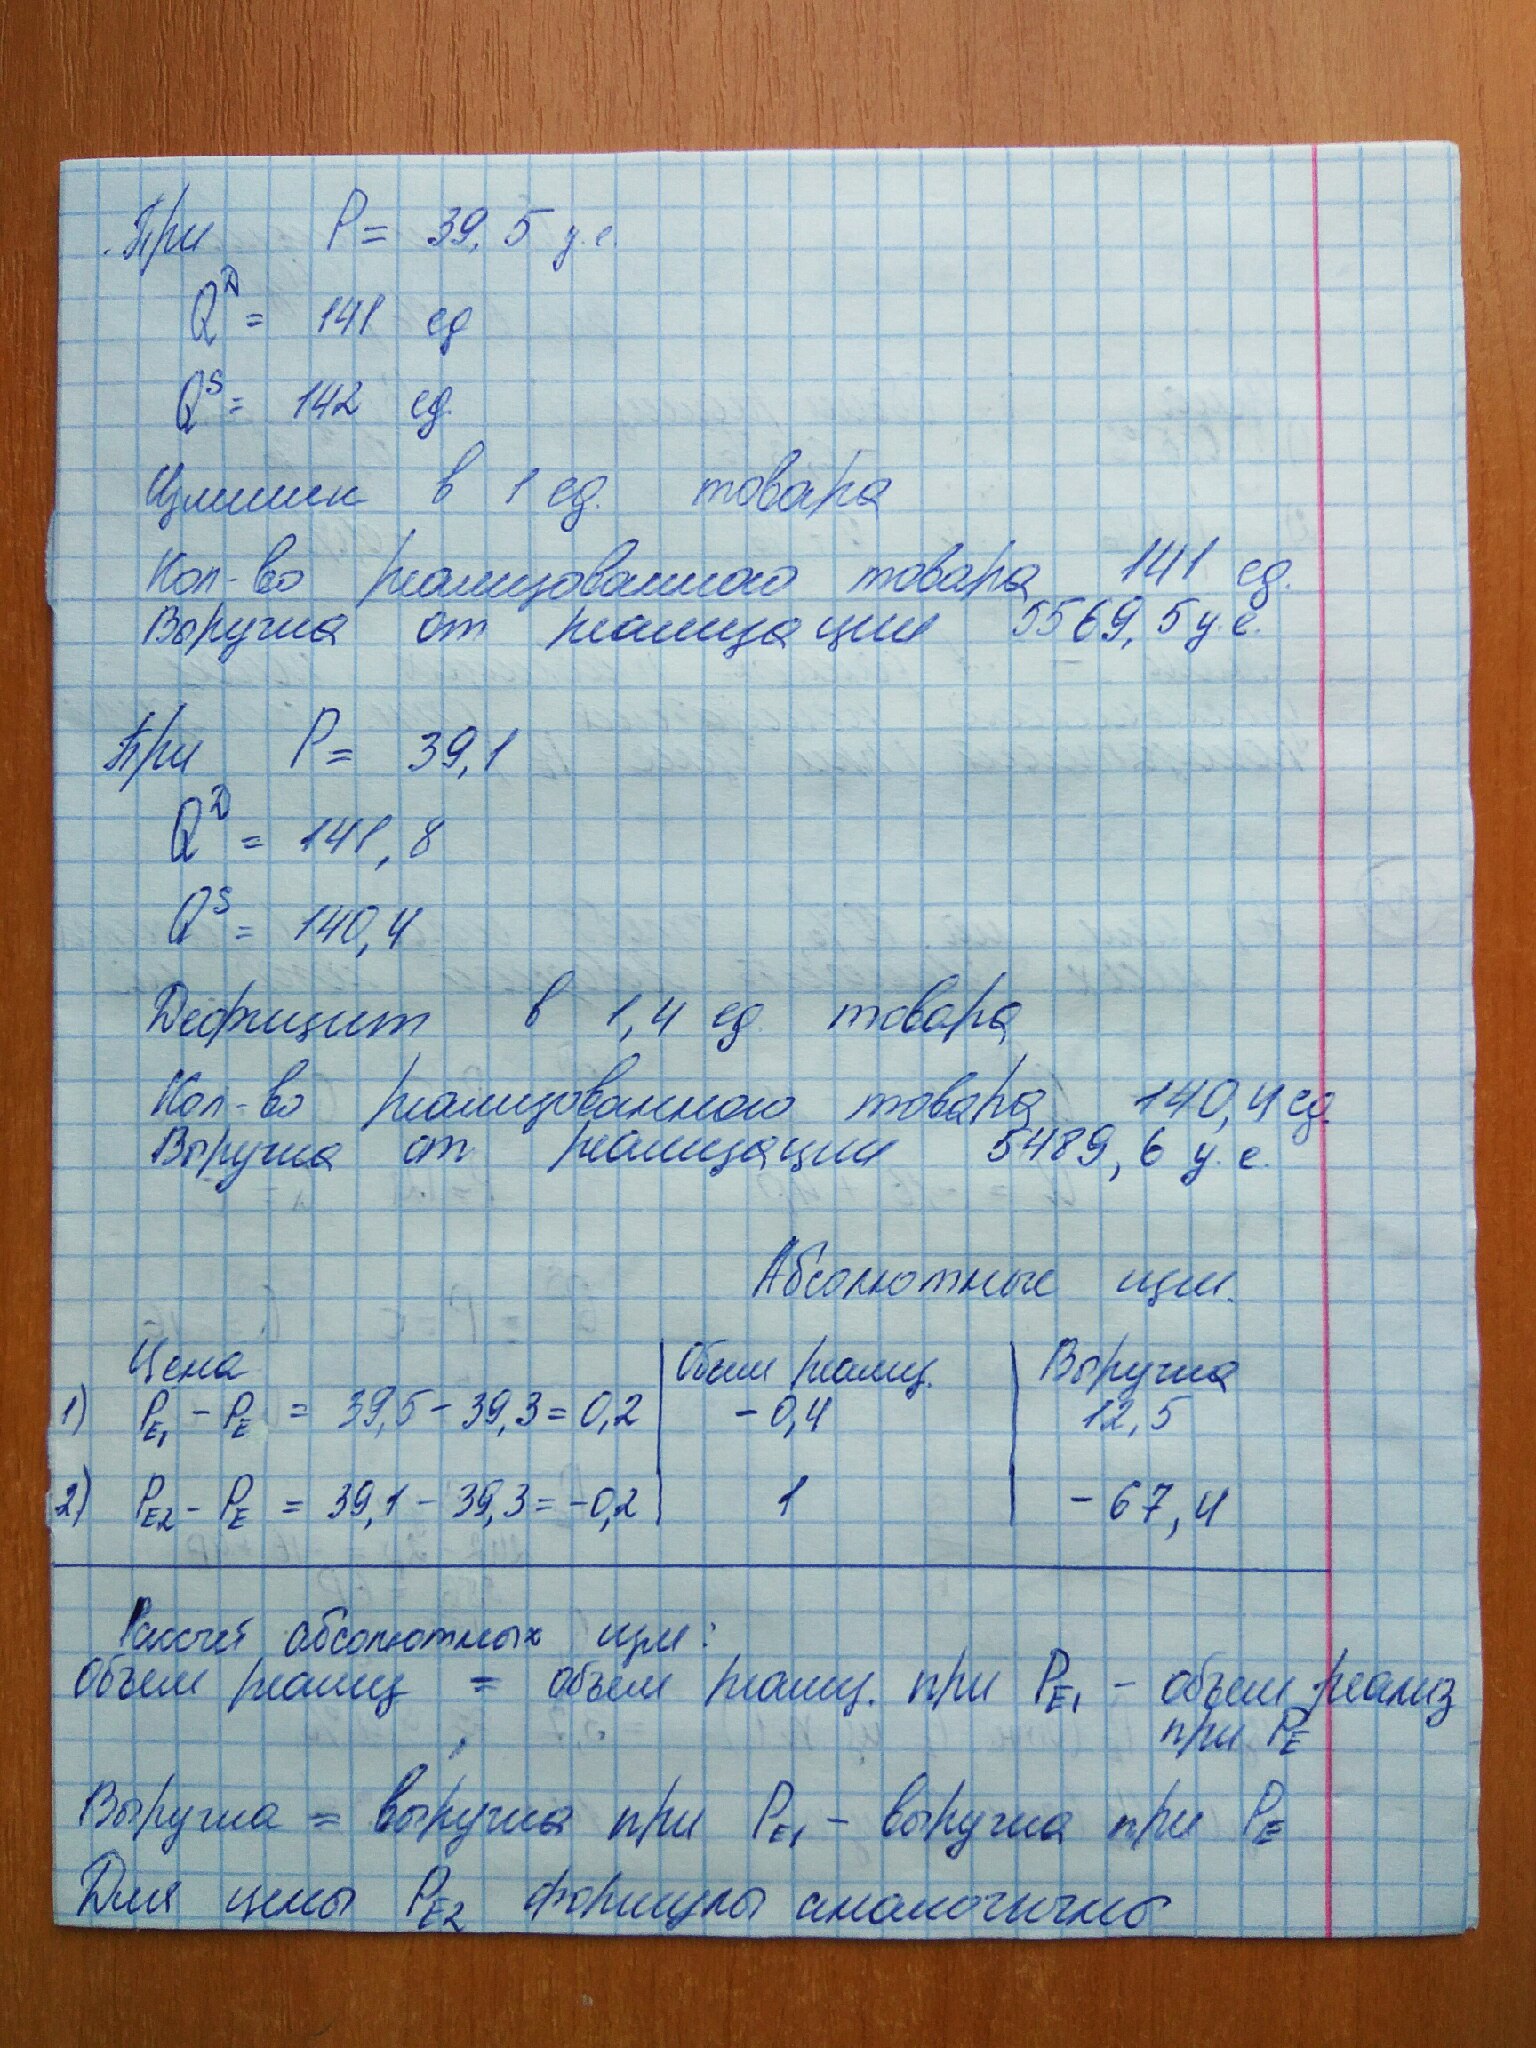 При P = 39,5 у.е.
Q^D = 141 ед
Q^S = 142 ед.
Излишек в 1 ед. товара
Кол-во реализованного товара 141 ед.
Выручка от реализации 5569,5 у.е.
При P = 39,1
Q^D = 141,8
Q^S = 140,4
Дефицит в 1,4 ед. товара
Кол-во реализованного товара 140,4 ед.
Выручка от реализации 5489,6 у.е.
Абсолютные изм.
Цена | Объем реализ. | Выручка
1) P_E1 - P_E = 39,5 - 39,3 = 0,2 | -0,4 | 12,5
2) P_E2 - P_E = 39,1 - 39,3 = -0,2 | 1 | -67,4
Рассчет абсолютных изм:
Объем реализ = объем реализ. при P_E1 - объем реализ
при P_E
Выручка = выручка при P_E1 - выручка при P_E
Для цены P_E2 формулы аналогичны